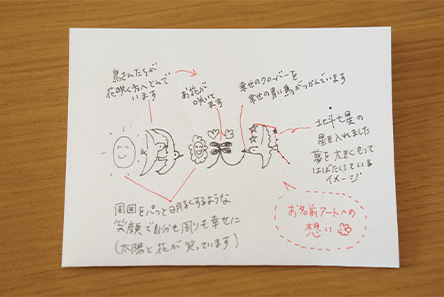 鳥さんたちが
花咲く方へとんで
います
お花が
咲いて
ます
幸せのクローバーを
幸せの青い鳥がつかんでいます
北斗七星の
星を入れました
夢を大きくもって
はばたいている
イメージ
周囲をパッと明るくするような
笑顔で自分も周りも幸せに
(太陽と花が笑っています)
お名前アートへの
想い